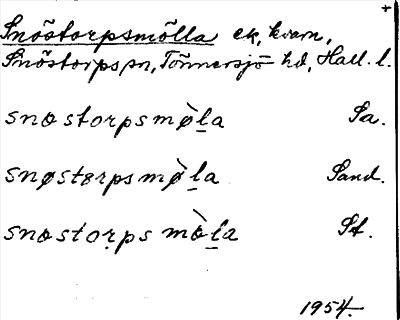 +
Snöstorpsmölla ek, kvarn,
Snöstorps sn, Tönnersjö hd, Hall. l.
snøstorpsmø̀l̲a Sa.
snøstɵrpsmø̀l̲a Sand.
snøstọrpsmø̀l̲a St.
1954.